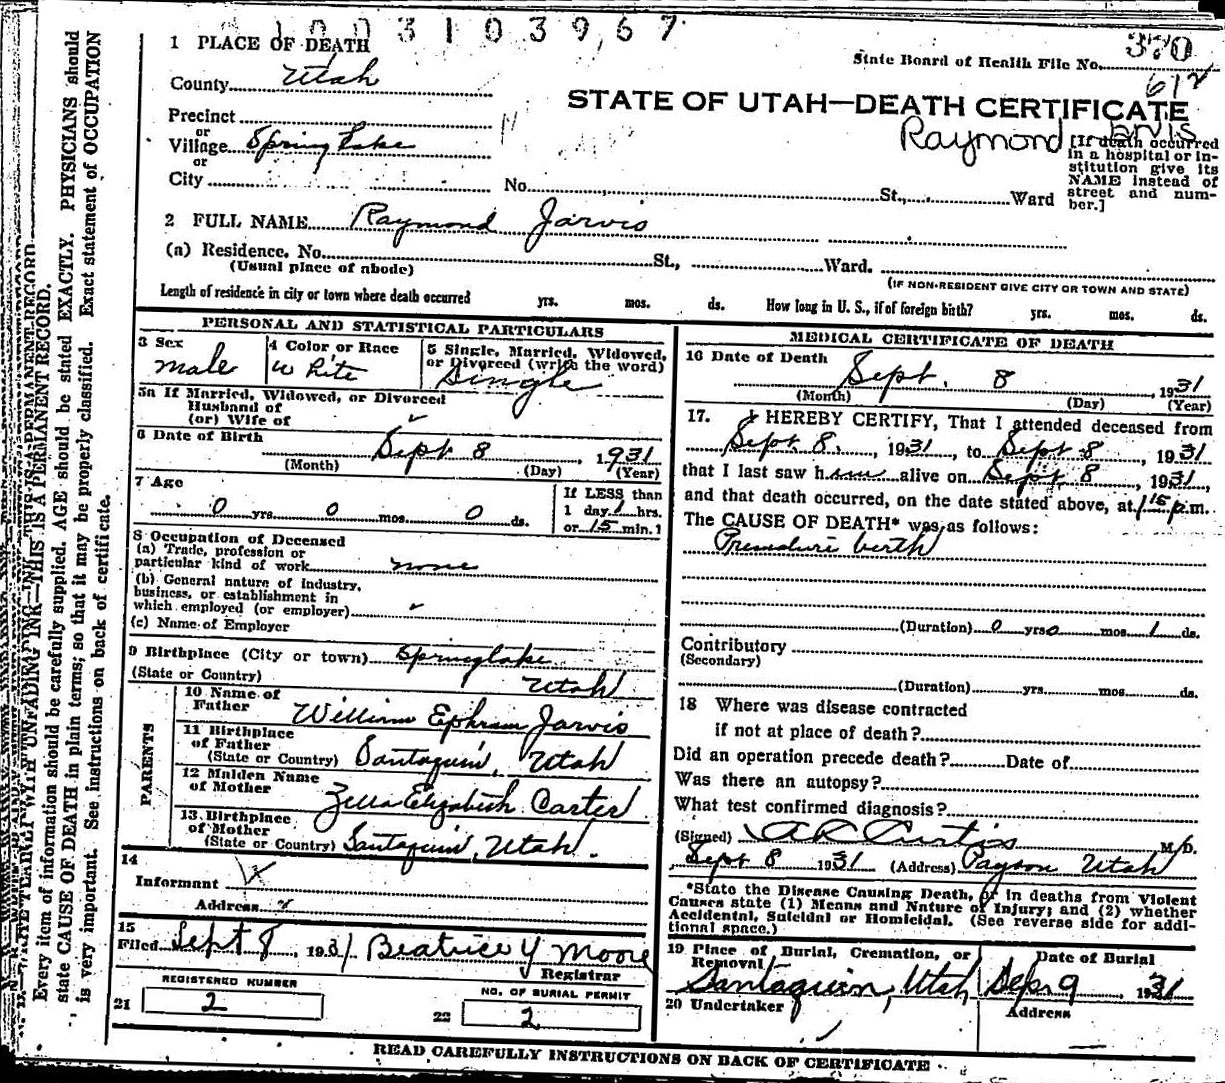 1003103967
1 PLACE OF DEATH
State Board of Health File No. 370
612
County Utah
STATE OF UTAH—DEATH CERTIFICATE
Raymond Jarvis
Precinct
or
Village Spring Lake
or
City No. St., Ward
[If death occurred
in a hospital or in-
stitution give its
NAME instead of
street and num-
ber.]
2 FULL NAME Raymond Jarvis
(a) Residence. No. St., Ward.
(Usual place of abode) (IF NON-RESIDENT GIVE CITY OR TOWN AND STATE)
Length of residence in city or town where death occurred yrs. mos. ds. How long in U. S., if of foreign birth? yrs. mos. ds.
PERSONAL AND STATISTICAL PARTICULARS
3 Sex
male
4 Color or Race
white
5 Single, Married, Widowed,
or Divorced (write the word)
Single
5a If Married, Widowed, or Divorced
Husband of
(or) Wife of
6 Date of Birth
Sept 8, 1931
(Month) (Day) (Year)
7 Age
0 yrs. 0 mos. 0 ds.
If LESS than
1 day 1 hrs.
or 15 min.
8 Occupation of Deceased
(a) Trade, profession or
particular kind of work none
(b) General nature of industry,
business, or establishment in
which employed (or employer) ✓
(c) Name of Employer
9 Birthplace (City or town) Springlake
(State or Country) Utah
PARENTS
10 Name of
Father William Ephram Jarvis
11 Birthplace
of Father
(State or Country) Santaquin, Utah
12 Maiden Name
of Mother Zella Elizabeth Carter
13 Birthplace
of Mother
(State or Country) Santaquin, Utah.
14
Informant
Address
15
Filed Sept 8, 1931 Beatrice Y Moore
Registrar
REGISTERED NUMBER
21 2
NO. OF BURIAL PERMIT
22 2
MEDICAL CERTIFICATE OF DEATH
16 Date of Death
Sept. 8 1931
(Month) (Day) (Year)
17. I HEREBY CERTIFY, That I attended deceased from
Sept. 8, 1931, to Sept. 8, 1931
that I last saw him alive on Sept. 8, 1931,
and that death occurred, on the date stated above, at 1 15 p.m.
The CAUSE OF DEATH* was as follows:
Premature birth
(Duration) 0 yrs 0 mos. 1 ds.
Contributory
(Secondary)
(Duration) yrs mos. ds.
18 Where was disease contracted
if not at place of death?
Did an operation precede death? Date of
Was there an autopsy?
What test confirmed diagnosis?
(Signed) A R Curtis M.D.
Sept 8 1931 (Address) Payson Utah
*State the Disease Causing Death, or in deaths from Violent
Causes state (1) Means and Nature of Injury; and (2) whether
Accidental, Suicidal or Homicidal. (See reverse side for addi-
tional space.)
19 Place of Burial, Cremation, or
Removal
Santaquin, Utah
Date of Burial
Sept 9, 1931
20 Undertaker
Address
READ CAREFULLY INSTRUCTIONS ON BACK OF CERTIFICATE
WITH UNFADING INK—THIS IS A PERMANENT RECORD.
Every item of information should be carefully supplied. AGE should be stated EXACTLY. PHYSICIANS should
state CAUSE OF DEATH in plain terms; so that it may be properly classified. Exact statement of OCCUPATION
is very important. See instructions on back of certificate.